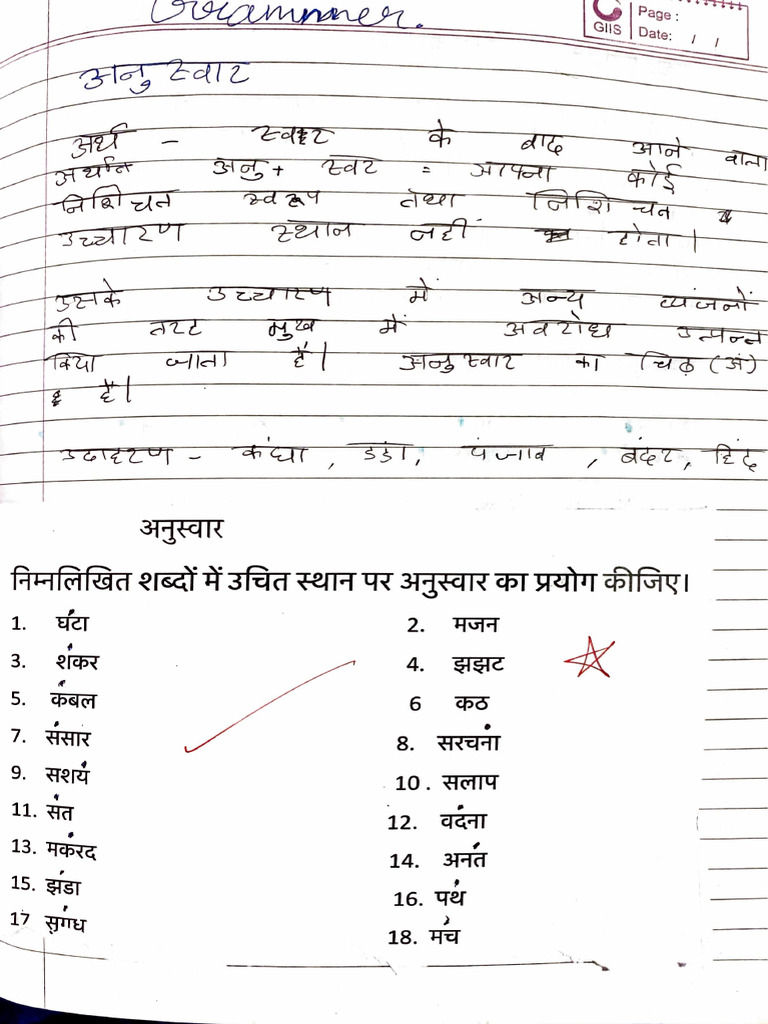 Grammer.
GIIS
Page :
Date: / /
अनुस्वार
अर्थ - स्वर के बाद आने वाला
अर्थात अनु + स्वर = आपना कोई
निशिचत स्वरूप तथा निशिचत
उच्चारण स्थान नहीं होता।
उसके उच्चारण में अन्य व्यंजनों
की तरह मुख में अवरोध उत्पन्न
किया जाता है। अनुस्वार का चिह्न (अं)
है।
उदाहरण - कंघा, डडां, पंजाब, बंदर, हिंद
अनुस्वार
निम्नलिखित शब्दों में उचित स्थान पर अनुस्वार का प्रयोग कीजिए।
1. घंटा 2. मजन
3. शंकर 4. झझट
5. कंबल 6 कठ
7. संसार 8. सरचंना
9. सशयं 10. सलाप
11. संत 12. वदंना
13. मकंरद 14. अनंत
15. झंडा 16. पथं
17 सुगंध 18. मंच